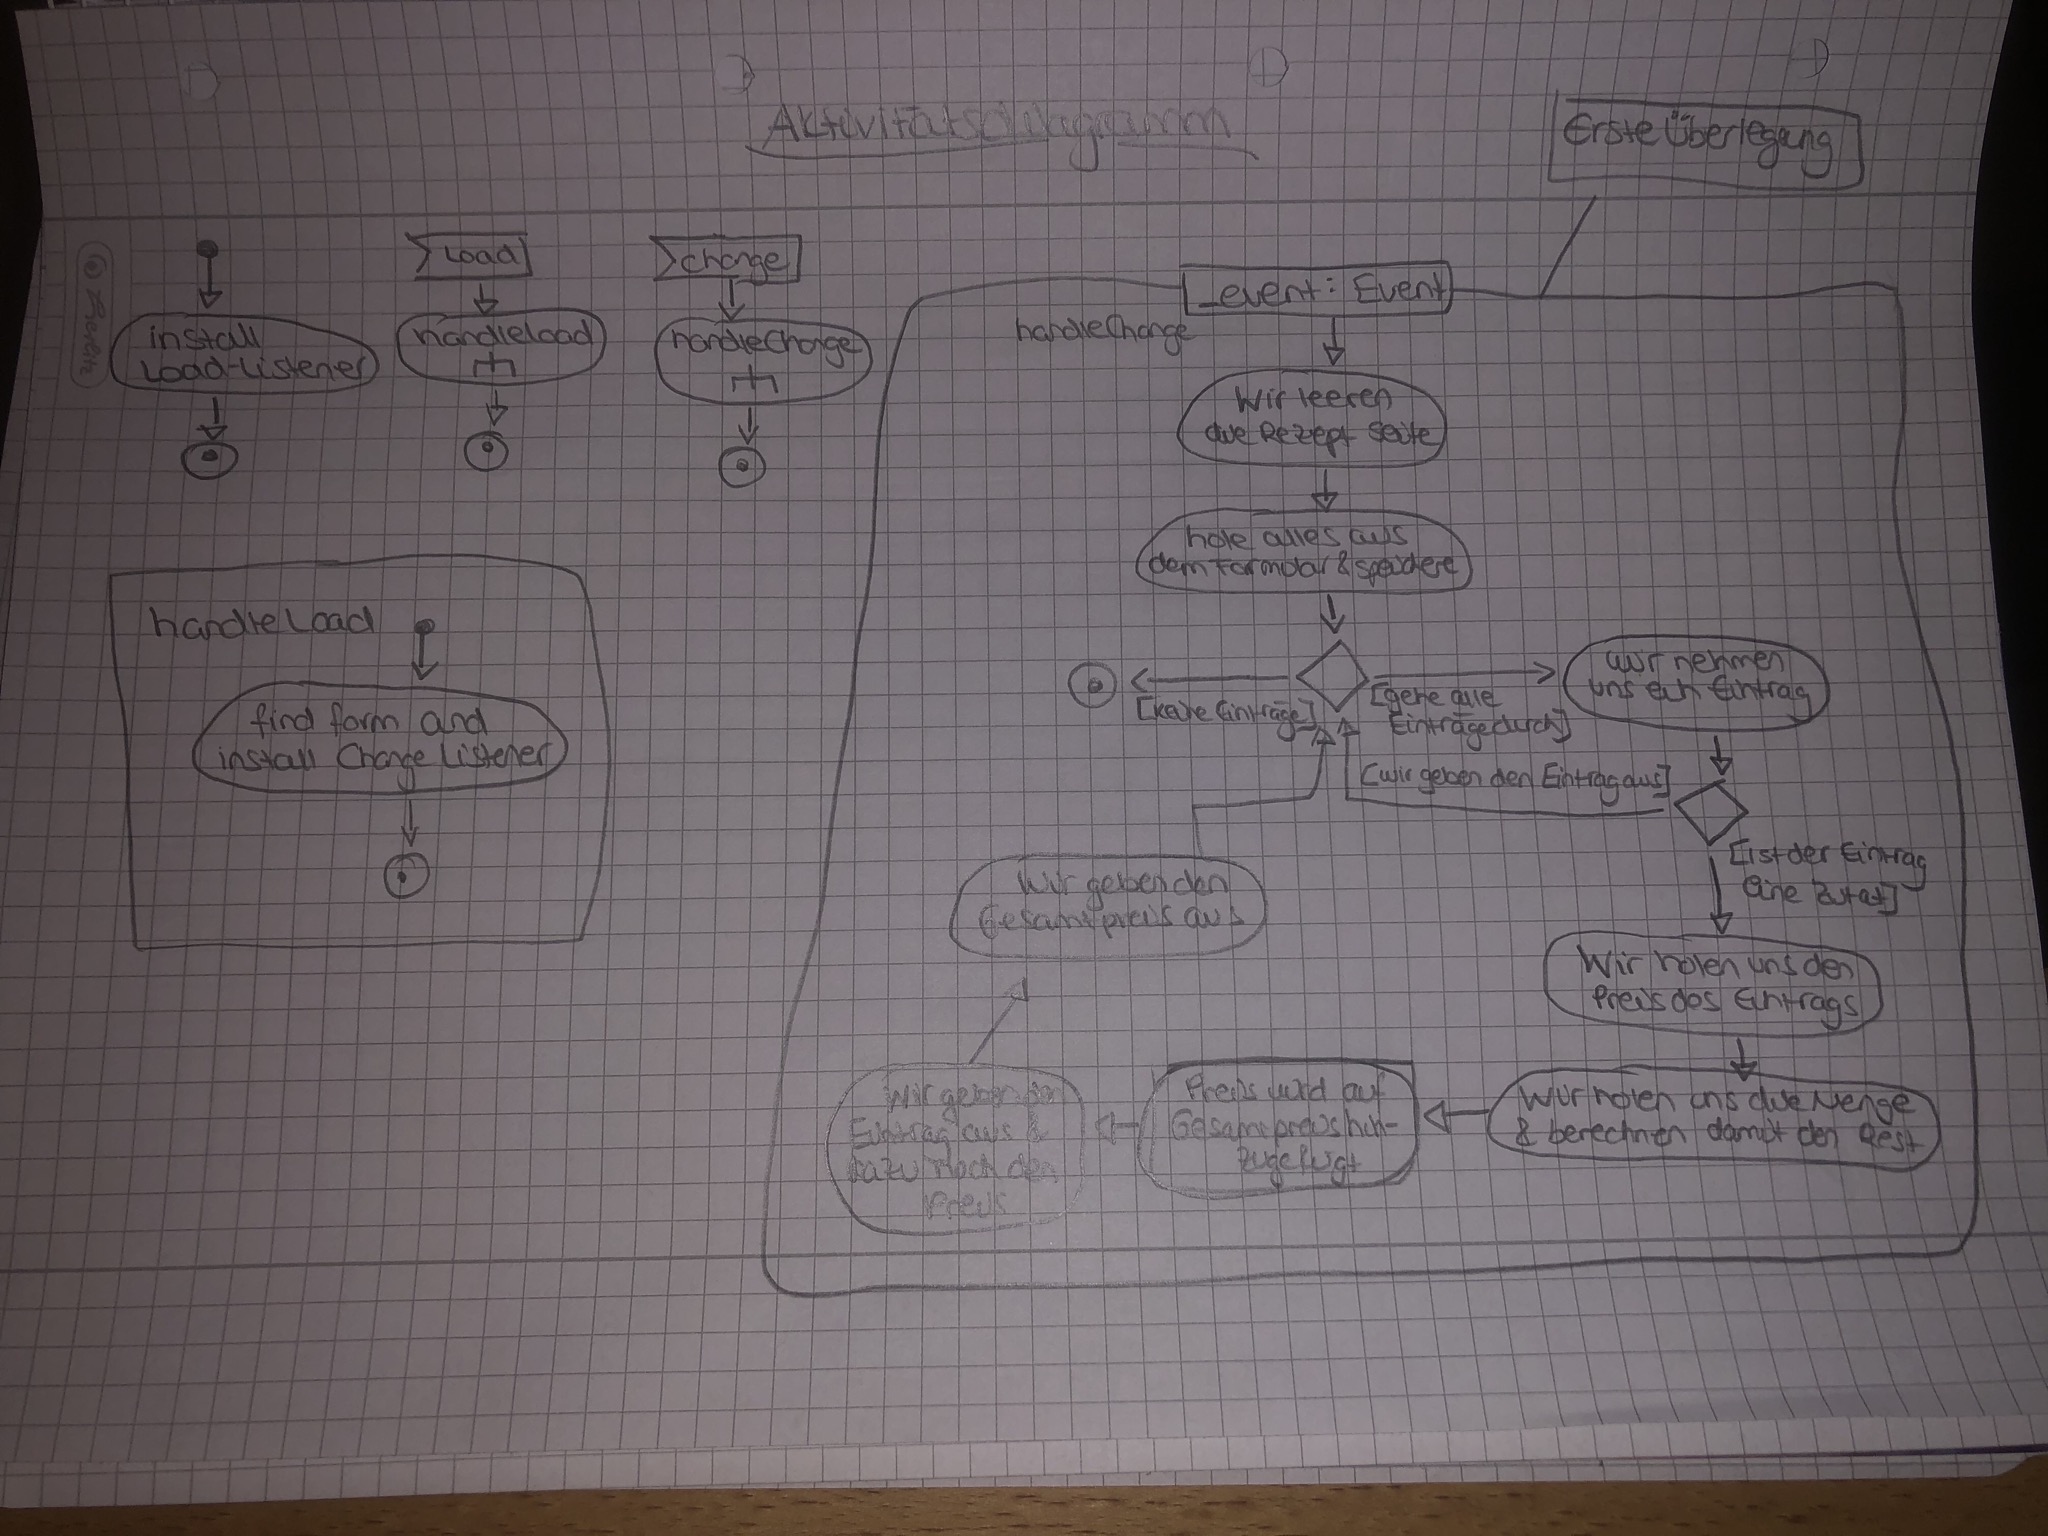 Aktivitätsdiagramm
Erste Überlegung
Load
change
install
Load-Listener
handleload
handleChange
handleLoad
find form and
install Change Listener
_event: Event
handleChange
Wir leeren
die Rezept Seite
hole alles aus
dem Formular & speichere
[keine Einträge]
[gehe alle
Einträge durch]
wir nehmen
uns ein Eintrag
[wir geben den Eintrag aus]
[ist der Eintrag
eine Zutat]
Wir holen uns den
Preis des Eintrags
Wir holen uns die Menge
& berechnen damit den Rest
Preis wird auf
Gesamtpreis hin-
zugefügt
Wir geben den
Eintrag aus &
dazu noch den
Preis
Wir geben den
Gesamtpreis aus